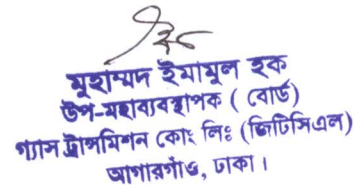 মুহাম্মদ ইমামুল হক
উপ-মহাব্যবস্থাপক ( বোর্ড)
গ্যাস ট্রান্সমিশন কোং লিঃ (জিটিসিএল)
আগারগাঁও, ঢাকা।